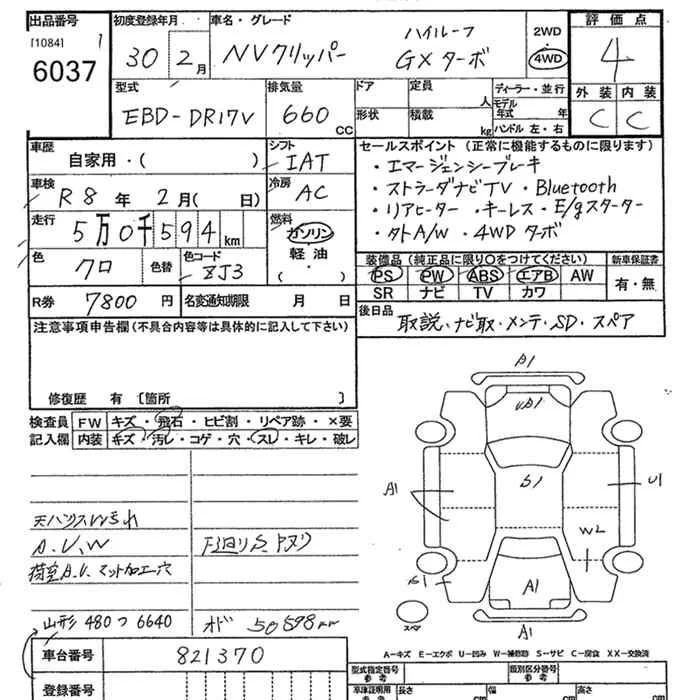 出品番号 初度登録年月 車名・グレード 評価点
[1084] 1
6037
30年 2月 NVクリッパー ハイルーフ GXターボ 2WD 4WD 4
型式 排気量 ドア 定員 ディーラー・並行 外装 内装
EBD-DR17V 660 CC 形状 積載 人 kg モデル年式 年 ハンドル 左・右 C C
車歴 シフト セールスポイント (正常に機能するものに限ります)
自家用・( ) IAT ・エマージェンシーブレーキ
車検 冷房 ・ストラーダナビTV ・Bluetooth
R8年 2月( 日) AC ・リアヒーター ・キーレス・E/gスターター
走行 燃料 ・タトA/W ・4WD ターボ
5万0千594km ガソリン
色 色替 色コード 軽油・ 装備品 (純正品に限り○をつけてください) 新車保証書
クロ ZJ3 ( ) PS PW ABS エアB AW 有・無
SR ナビ TV カワ
R券 7800円 名変通知期限 月 日 後日品
取説・ナビ取・メンテ・SD・スペア
注意事項申告欄(不具合内容等は具体的に記入して下さい)
修復歴 有 [箇所 ]
検査員 FW キズ・飛石・ヒビ割・リペア跡・×要
記入欄 内装 キズ・汚レ・コゲ・穴・スレ・キレ・破レ
A1
UA1
A1 S1 U1
W2
S1 A1
A1
スペア
A.U.W
荷室A.U. マット加工穴
山形 480つ 6640 オド 50598km
A-キズ E-エクボ U-凹み W-補修跡 S-サビ C-腐食 XX-交換済
車台番号 821370
登録番号
型式指定番号 参考 類別区分番号 参考
車庫証明用 参考 長さ cm 幅 cm 高さ cm